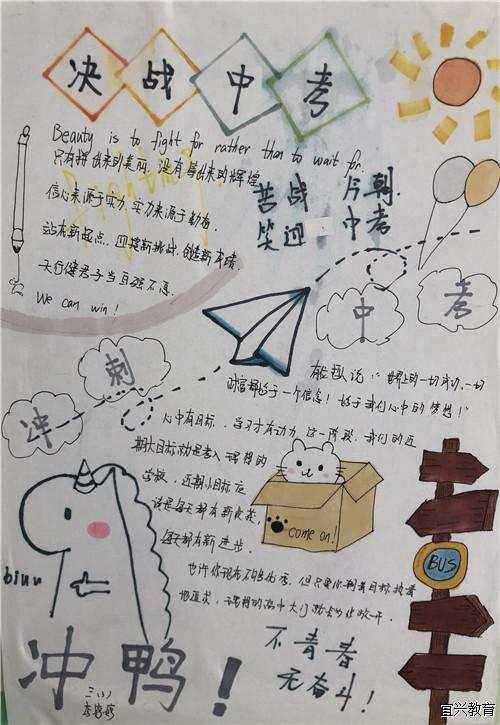 决战中考
Beauty is to fight for rather than to wait for.
只有拼出来的美丽,没有等出来的辉煌
信心来源于实力,实力来源于勤奋
站在新起点,迎接新挑战,创造新成绩.
天行健君子当自强不息.
We can win!
苦战
笑迎中考
中考
冲刺
有人想说:"世界上的一切成功,一切
财富都始于一个信念!始于我们心中的梦想!"
心中有目标,学习才有动力 这一阶段,我们的近
期大目标就是考入理想的
学校,近期小目标应
该是每天都有新收获,
每天都有新进步.
come on!
BUS
biuu
也许你现在不够优秀,但只要你朝着目标执着
地追求,理想的高中大门就会为你敞开.
冲鸭!
不青春
无奋斗!
宜兴教育